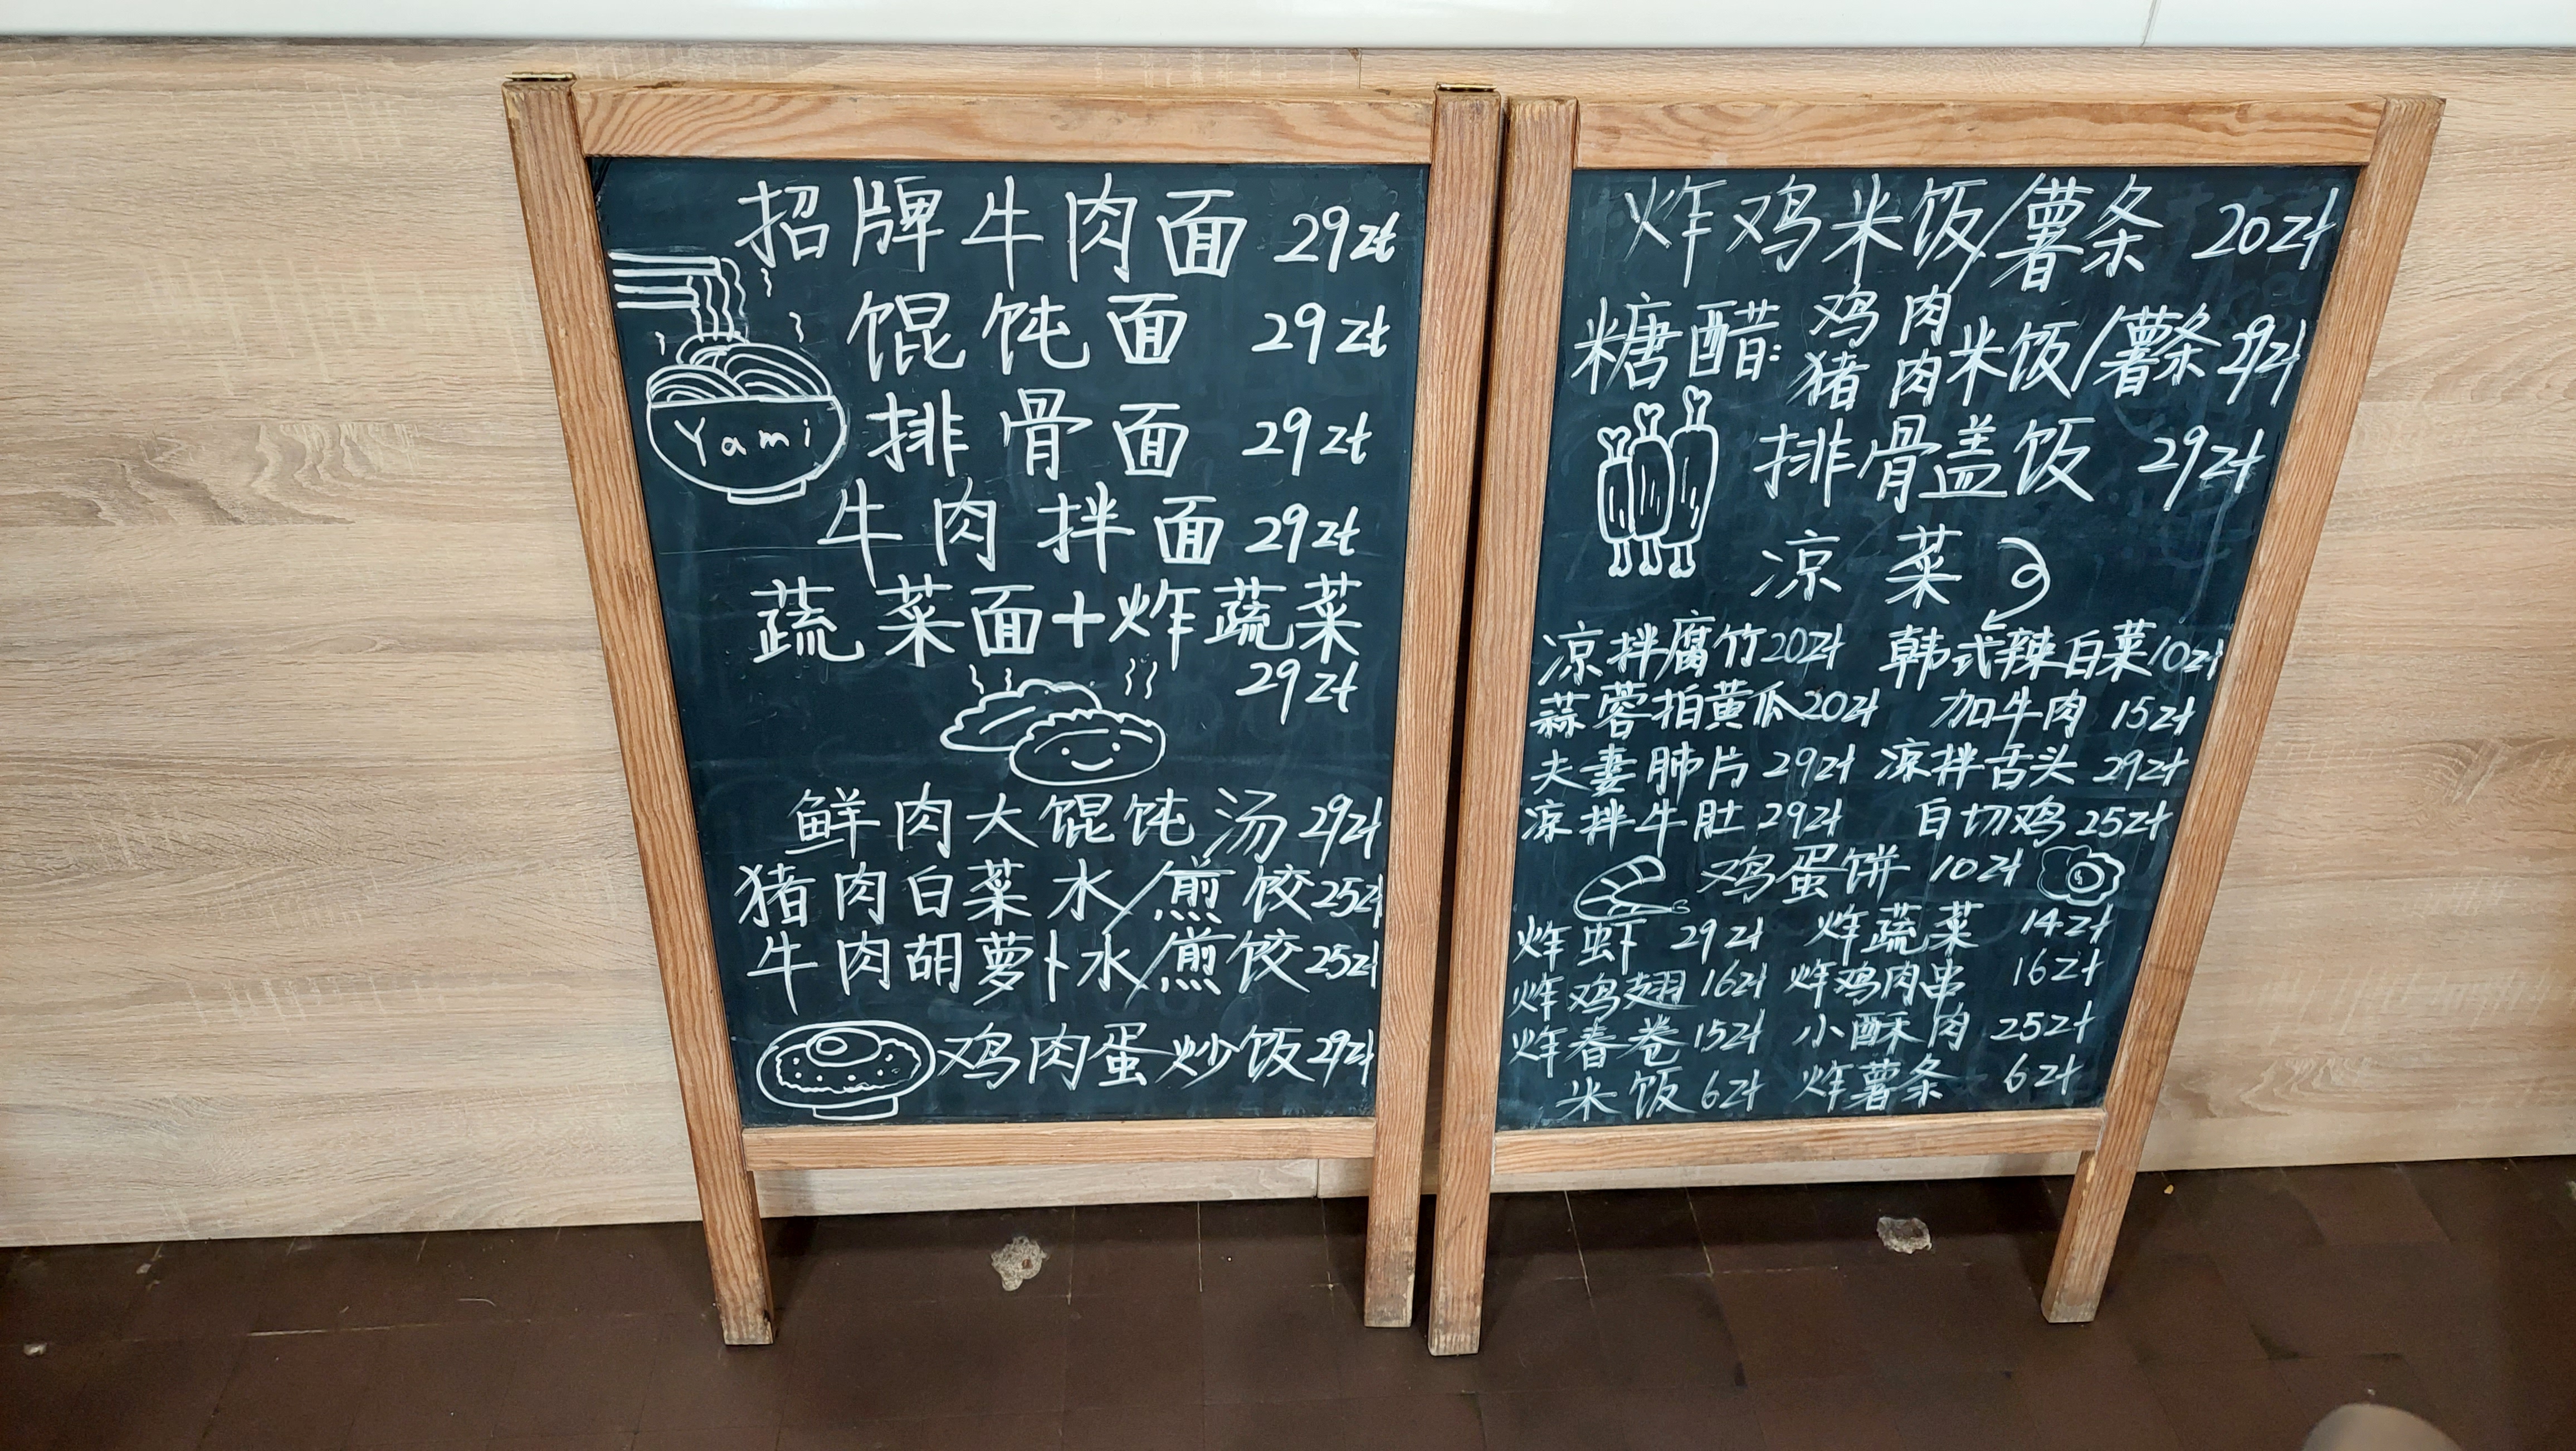 招牌牛肉面 29zł
馄饨面 29zł
Yami
排骨面 29zł
牛肉拌面 29zł
蔬菜面+炸蔬菜
29zł
鲜肉大馄饨汤 29zł
猪肉白菜水/煎饺 25zł
牛肉胡萝卜水/煎饺 25zł
鸡肉蛋炒饭 29zł
炸鸡米饭/薯条 20zł
糖醋: 鸡肉
猪肉 米饭/薯条 29zł
排骨盖饭 29zł
凉菜
凉拌腐竹 20zł 韩式辣白菜 10zł
蒜蓉拍黄瓜 20zł 加牛肉 15zł
夫妻肺片 29zł 凉拌舌头 29zł
凉拌牛肚 29zł 白切鸡 25zł
鸡蛋饼 10zł
炸虾 29zł 炸蔬菜 14zł
炸鸡翅 16zł 炸鸡肉串 16zł
炸春卷 15zł 小酥肉 25zł
米饭 6zł 炸薯条 6zł